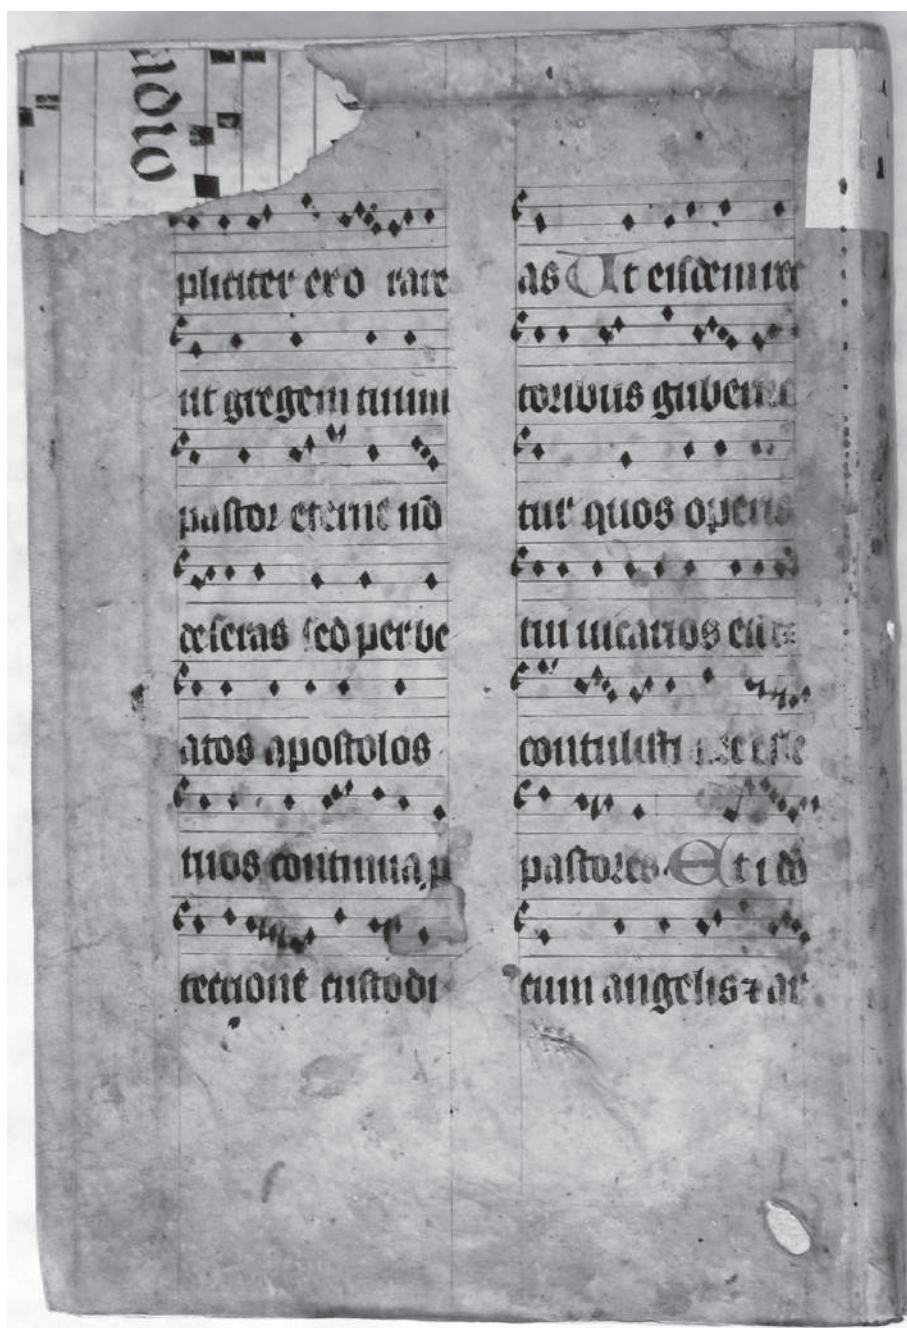 pliciter exo rare
ut gregem tuum
pastor eterne nō
deseras sed per be
atos apostolos
tuos continua p
tectionē custodi
as Ut eisdem rec
toribus guberne
tur quos operis
tui uicarios eidē
contulisti preesse
pastores Et i deo
cum angelis ⁊ ar